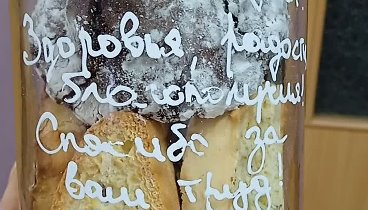 Здоровья, радост
благополучия!
Спасибо за
ваш труд!